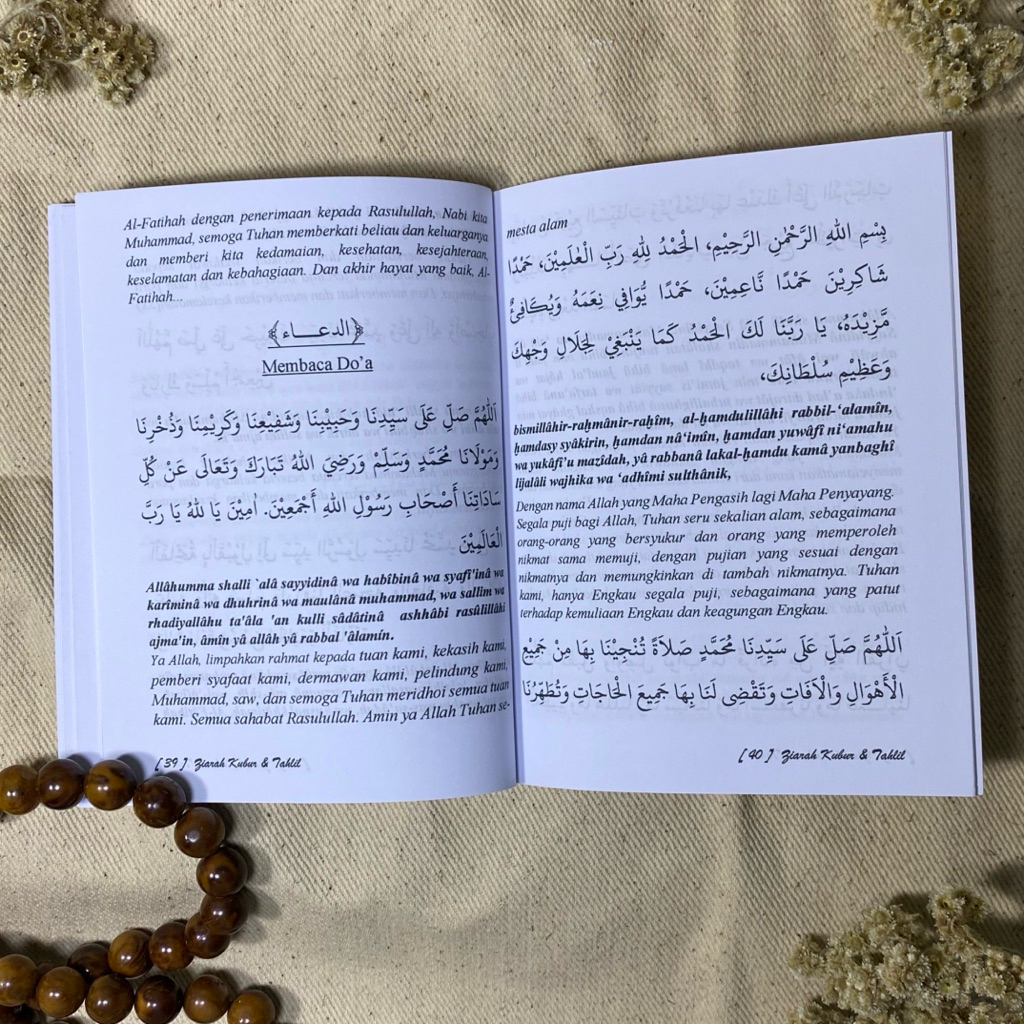 Al-Fatihah dengan penerimaan kepada Rasulullah, Nabi kita
Muhammad, semoga Tuhan memberkati beliau dan keluarganya
dan memberi kita kedamaian, kesehatan, kesejahteraan,
keselamatan dan kebahagiaan. Dan akhir hayat yang baik, Al-
Fatihah...
﴿الدعـــاء﴾
Membaca Do’a
اَللّٰهُمَّ صَلِّ عَلَى سَيِّدِنَا وَحَبِيْبِنَا وَشَفِيْعِنَا وَكَرِيْمِنَا وَذُخْرِنَا
وَمَوْلَانَا مُحَمَّدٍ وَسَلِّمْ وَرَضِيَ اللهُ تَبَارَكَ وَتَعَالَى عَنْ كُلِّ
سَادَاتِنَا أَصْحَابِ رَسُوْلِ اللهِ أَجْمَعِيْنَ. اٰمِيْنَ يَا اللهُ يَا رَبَّ
الْعَالَمِيْنَ
Allâhumma shalli `alâ sayyidinâ wa habîbinâ wa syafî'inâ wa
karîminâ wa dhuhrinâ wa maulânâ muhammad, wa sallim wa
rhadiyallâhu ta'âla 'an kulli sâdâtinâ ashhâbi rasûlillâhi
ajma'in, âmîn yâ allâh yâ rabbal 'âlamîn.
Ya Allah, limpahkan rahmat kepada tuan kami, kekasih kami,
pemberi syafaat kami, dermawan kami, pelindung kami,
Muhammad, saw, dan semoga Tuhan meridhoi semua tuan
kami. Semua sahabat Rasulullah. Amin ya Allah Tuhan se-
[ 39 ] Ziarah Kubur & Tahlil
mesta alam
بِسْمِ اللهِ الرَّحْمٰنِ الرَّحِيْمِ، الْحَمْدُ لِلّٰهِ رَبِّ الْعٰلَمِيْنَ، حَمْدًا
شَاكِرِيْنَ حَمْدًا نَّاعِمِيْنَ، حَمْدًا يُّوَافِي نِعَمَهُ وَيُكَافِئُ
مَّزِيْدَهُ، يَا رَبَّنَا لَكَ الْحَمْدُ كَمَا يَنْبَغِيْ لِجَلَالِ وَجْهِكَ
وَعَظِيْمِ سُلْطَانِكَ،
bismillâhir-raḥmânir-raḥîm, al-ḥamdulillâhi rabbil-‘alamîn,
ḥamdasy syâkirin, ḥamdan nâ‘imîn, ḥamdan yuwâfî ni‘amahu
wa yukâfi’u mazîdah, yâ rabbana lakal-ḥamdu kamâ yanbaghî
lijalâli wajhika wa ‘adhîmi sulthânik,
Dengan nama Allah yang Maha Pengasih lagi Maha Penyayang.
Segala puji bagi Allah, Tuhan seru sekalian alam, sebagaimana
orang-orang yang bersyukur dan orang yang memperoleh
nikmat sama memuji, dengan pujian yang sesuai dengan
nikmatnya dan memungkinkan di tambah nikmatnya. Tuhan
kami, hanya Engkau segala puji, sebagaimana yang patut
terhadap kemuliaan Engkau dan keagungan Engkau.
اَللّٰهُمَّ صَلِّ عَلَى سَيِّدِنَا مُحَمَّدٍ صَلَاةً تُنْجِيْنَا بِهَا مِنْ جَمِيْعِ
الْأَهْوَالِ وَالْاٰفَاتِ وَتَقْضِى لَنَا بِهَا جَمِيعَ الْحَاجَاتِ وَتُطَهِّرُنَا
[ 40 ] Ziarah Kubur & Tahlil